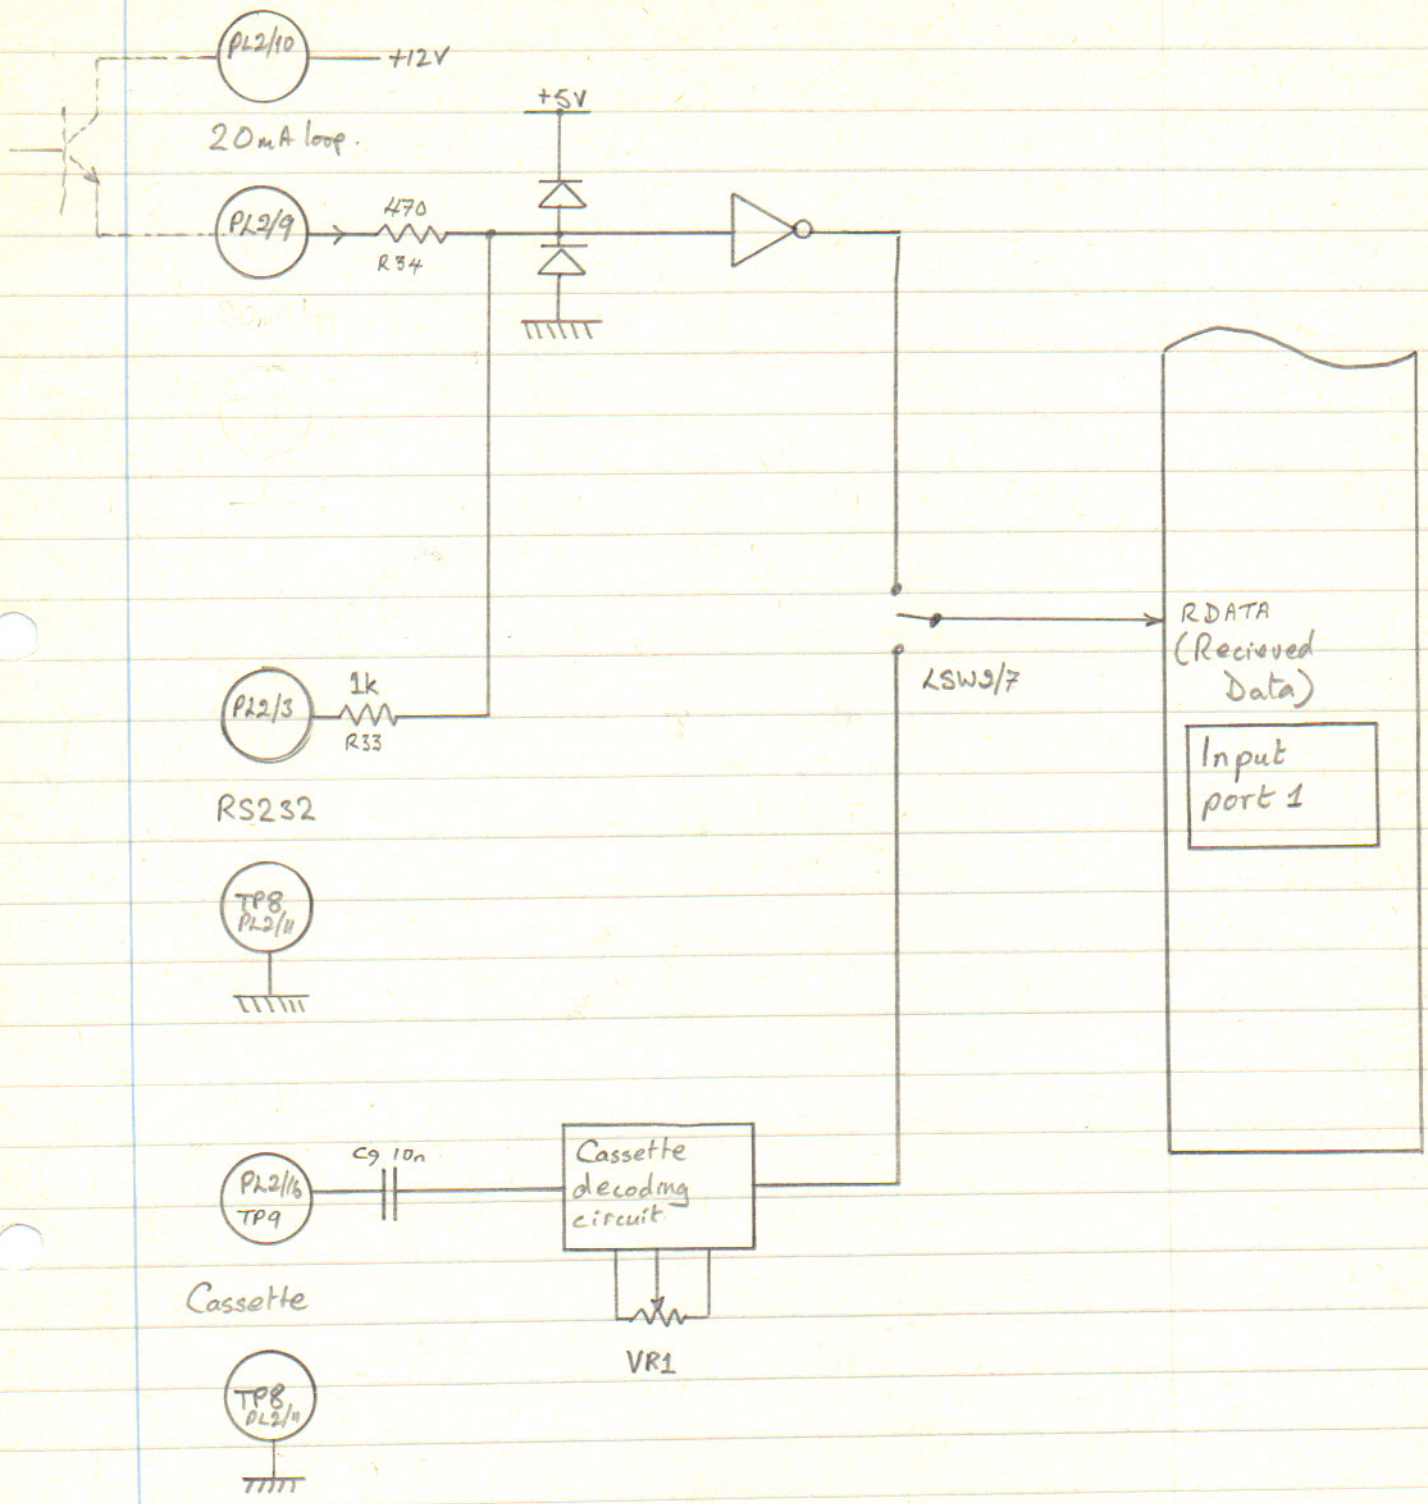 PL2/10
+12V
20mA loop.
+5V
PL2/9
470
R34
PL2/3
1k
R33
RS232
LSW2/7
RDATA
(Recieved
Data)
Input
port 1
TP8
PL2/11
PL2/16
TP9
C9 10n
Cassette
decoding
circuit.
Cassette
VR1
TP8
PL2/11